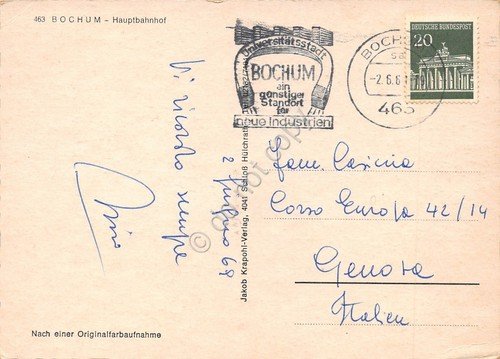 463 BOCHUM – Hauptbahnhof
Vi ricordo sempre
2 Giugno 68
Nach einer Originalfarbaufnahme
Jakob Krapohl-Verlag, 4041 Schloß Hülchrath
Universitätsstadt
BOCHUM
ein
günstiger
Standort
für
neue Industrien
BOCHUM
-2.6.6
463
20
DEUTSCHE BUNDESPOST
Fam. Casicina
Corso Europa 42/14
Genova
Italien